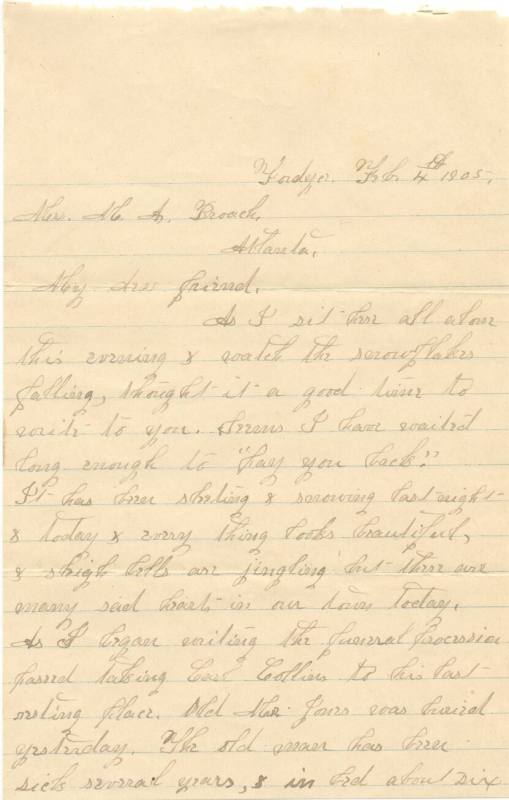 Fordyce. Feb. 4th 1905.
Mrs. M. A. Broach,
Atlanta,
My dear friend.
As I sit here all alone
this evening & watch the snowflakes
falling, thought it a good time to
write to you. Seems I have waited
long enough to "pay you back."
It has been sleeting & snowing last night
& today & every thing looks beautiful,
& sleigh bells are jingling but there are
many sad hearts in our town today.
As I began writing the funeral procession
passed taking Earl Collins to his last
resting place. Old Mr. Jones was buried
yesterday. The old man has been
sick several years, & in bed about six